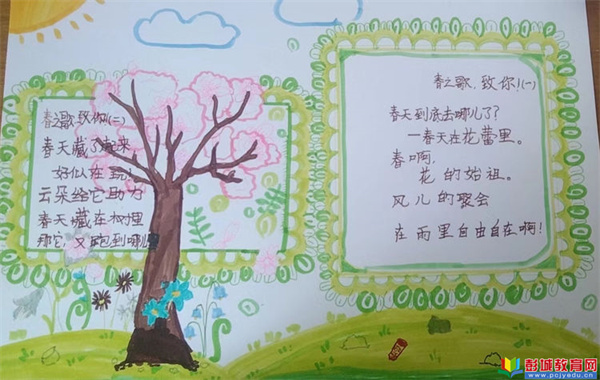 春之歌,致你(二)
春天藏了起来
好似在玩
云朵给它助力
春天藏在树里
那它,又跑到哪儿
春之歌,致你(一)
春天到底去哪儿了?
一春天在花蕾里。
春啊,
花的始祖。
风儿的宴会
在雨里自由自在啊!
彭城教育网
www.pcjyedu.cn